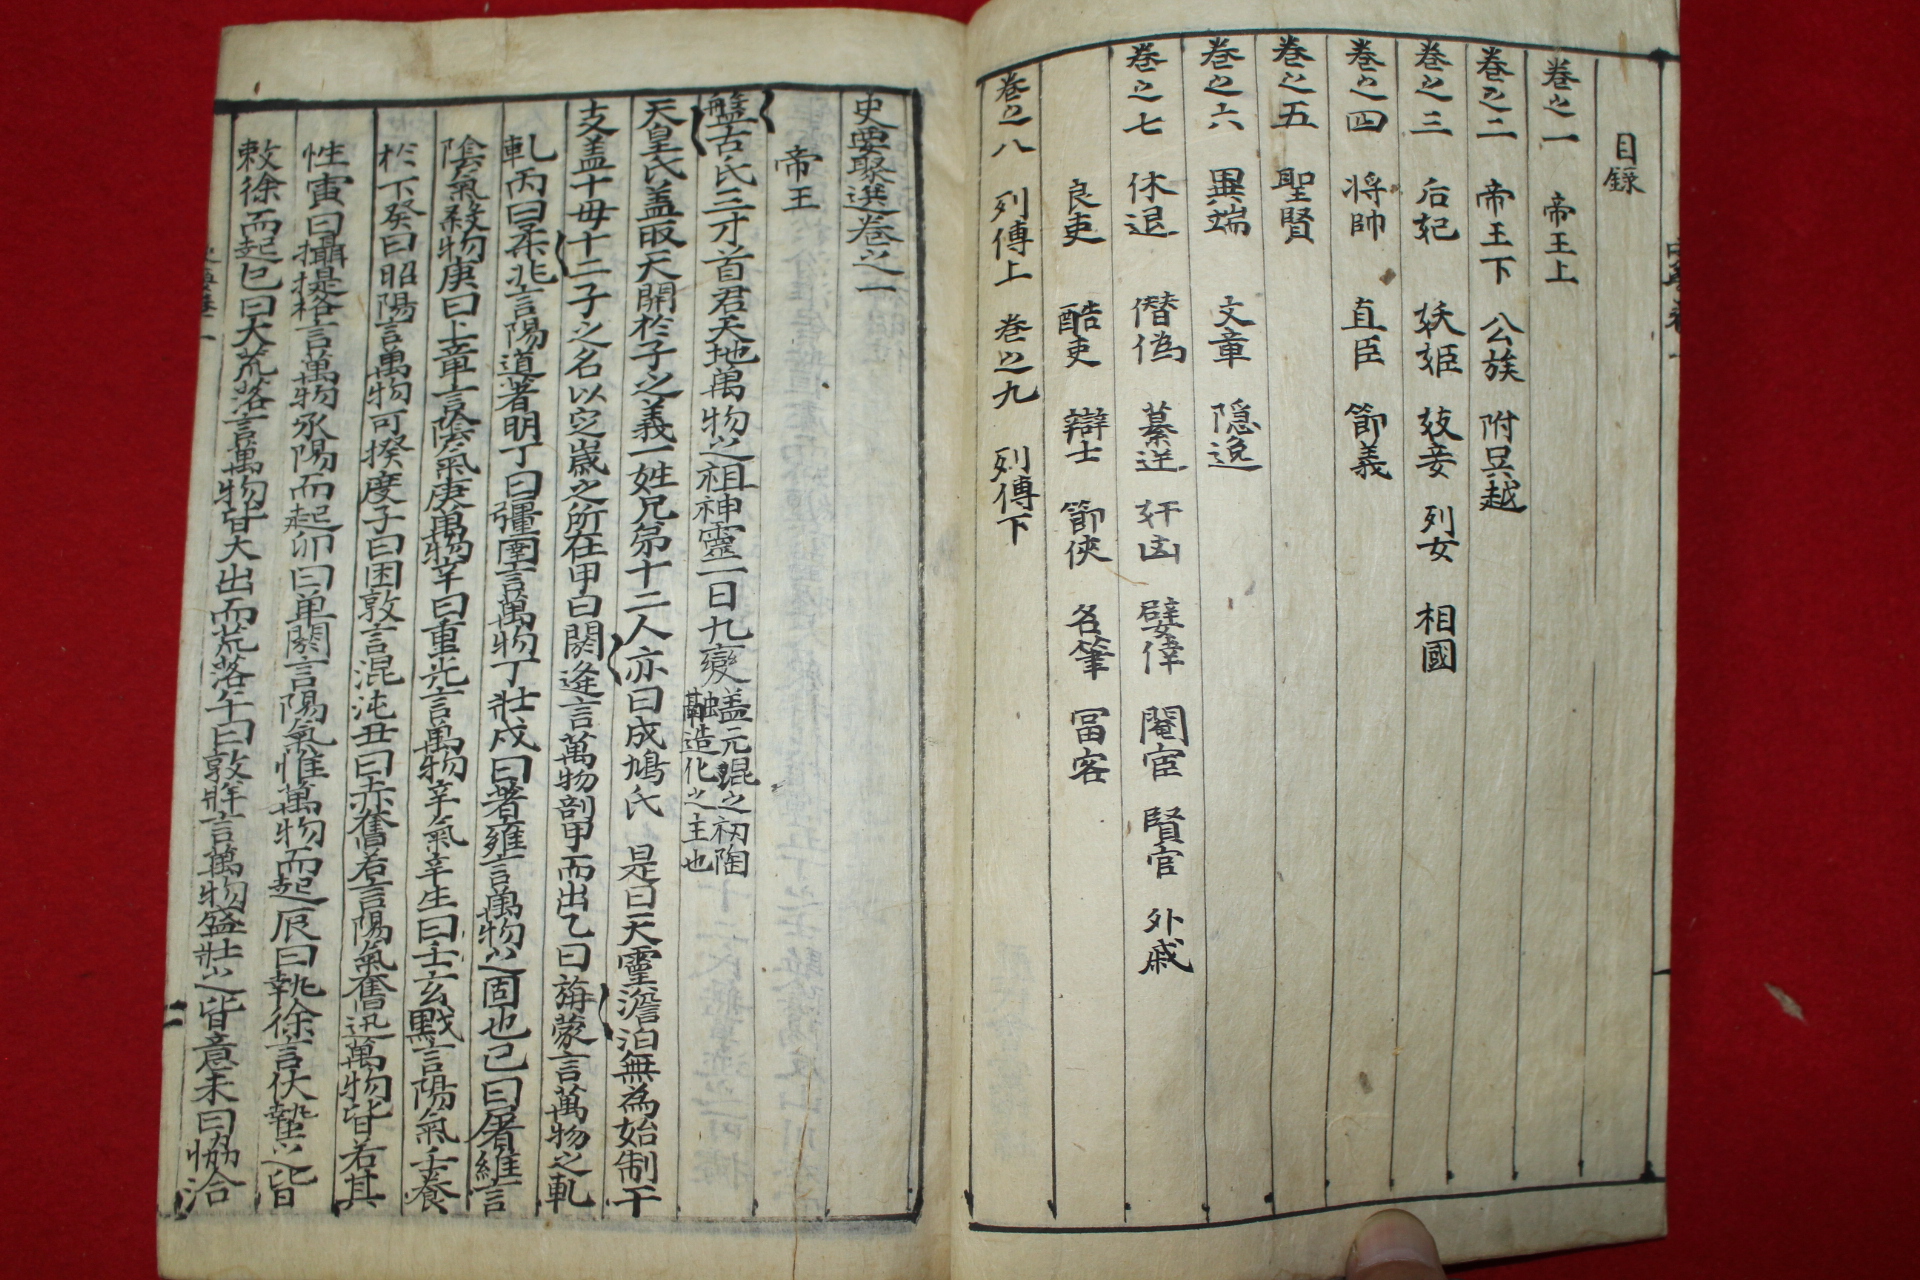 目錄
卷之一 帝王上
卷之二 帝王下 公族 附吳越
卷之三 后妃 妖姬 妓妾 列女 相國
卷之四 将帥 直臣 節義
卷之五 聖賢
卷之六 異端 文章 隠逸
卷之七 休退 僣偽 簒逆 奸凶 嬖倖 閹宦 賢宦 外戚
良吏 酷吏 辯士 節俠 名筆 冨客
卷之八 列傳上 卷之九 列傳下
史要聚選卷之一
帝王
盤古氏三才首君天地萬物之祖神靈一日九變
盖元混之初陶
融造化之主也
天皇氏盖取天開於子之義一姓兄弟十二人亦曰成鳩氏 是曰天靈澹泊無為始制干
支盖十母十二子之名以定歲之所在甲曰閼逢言萬物剖甲而出乙曰旃蒙言萬物之軋
軋丙曰柔兆言陽道著明丁曰彊圉言萬物丁壯戊曰著雍言萬物之固也己曰屠維言
陰氣穀物庚曰上章言陰氣庚萬物辛曰重光言萬物辛氣辛生曰壬玄黓言陽氣壬養
於下癸曰昭陽言萬物可揆度子曰困敦言混沌丑曰赤奮若言陽氣奮迅萬物皆若其
性寅曰攝提格言萬物承陽而起卯曰单閼言陽氣惟萬物而起辰曰執徐言伏蟄之皆
敕徐而起巳曰大荒落言萬物皆大出而荒落午曰敦牂言萬物盛壯之皆意未曰恊洽